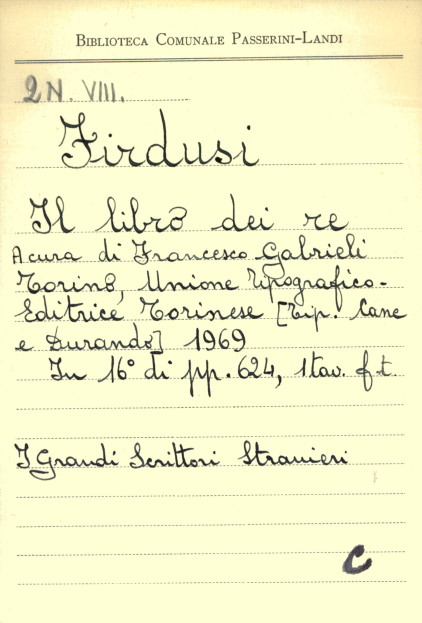 BIBLIOTECA COMUNALE PASSERINI-LANDI
2N. VIII.
Firdusi
Il libro dei re
A cura di Francesco Gabrieli
Torino, Unione Tipografico-
Editrice Torinese [Tip. Cane
e Durando] 1969
In 16° di pp. 624, 1 tav. f.t.
I Grandi Scrittori Stranieri
C